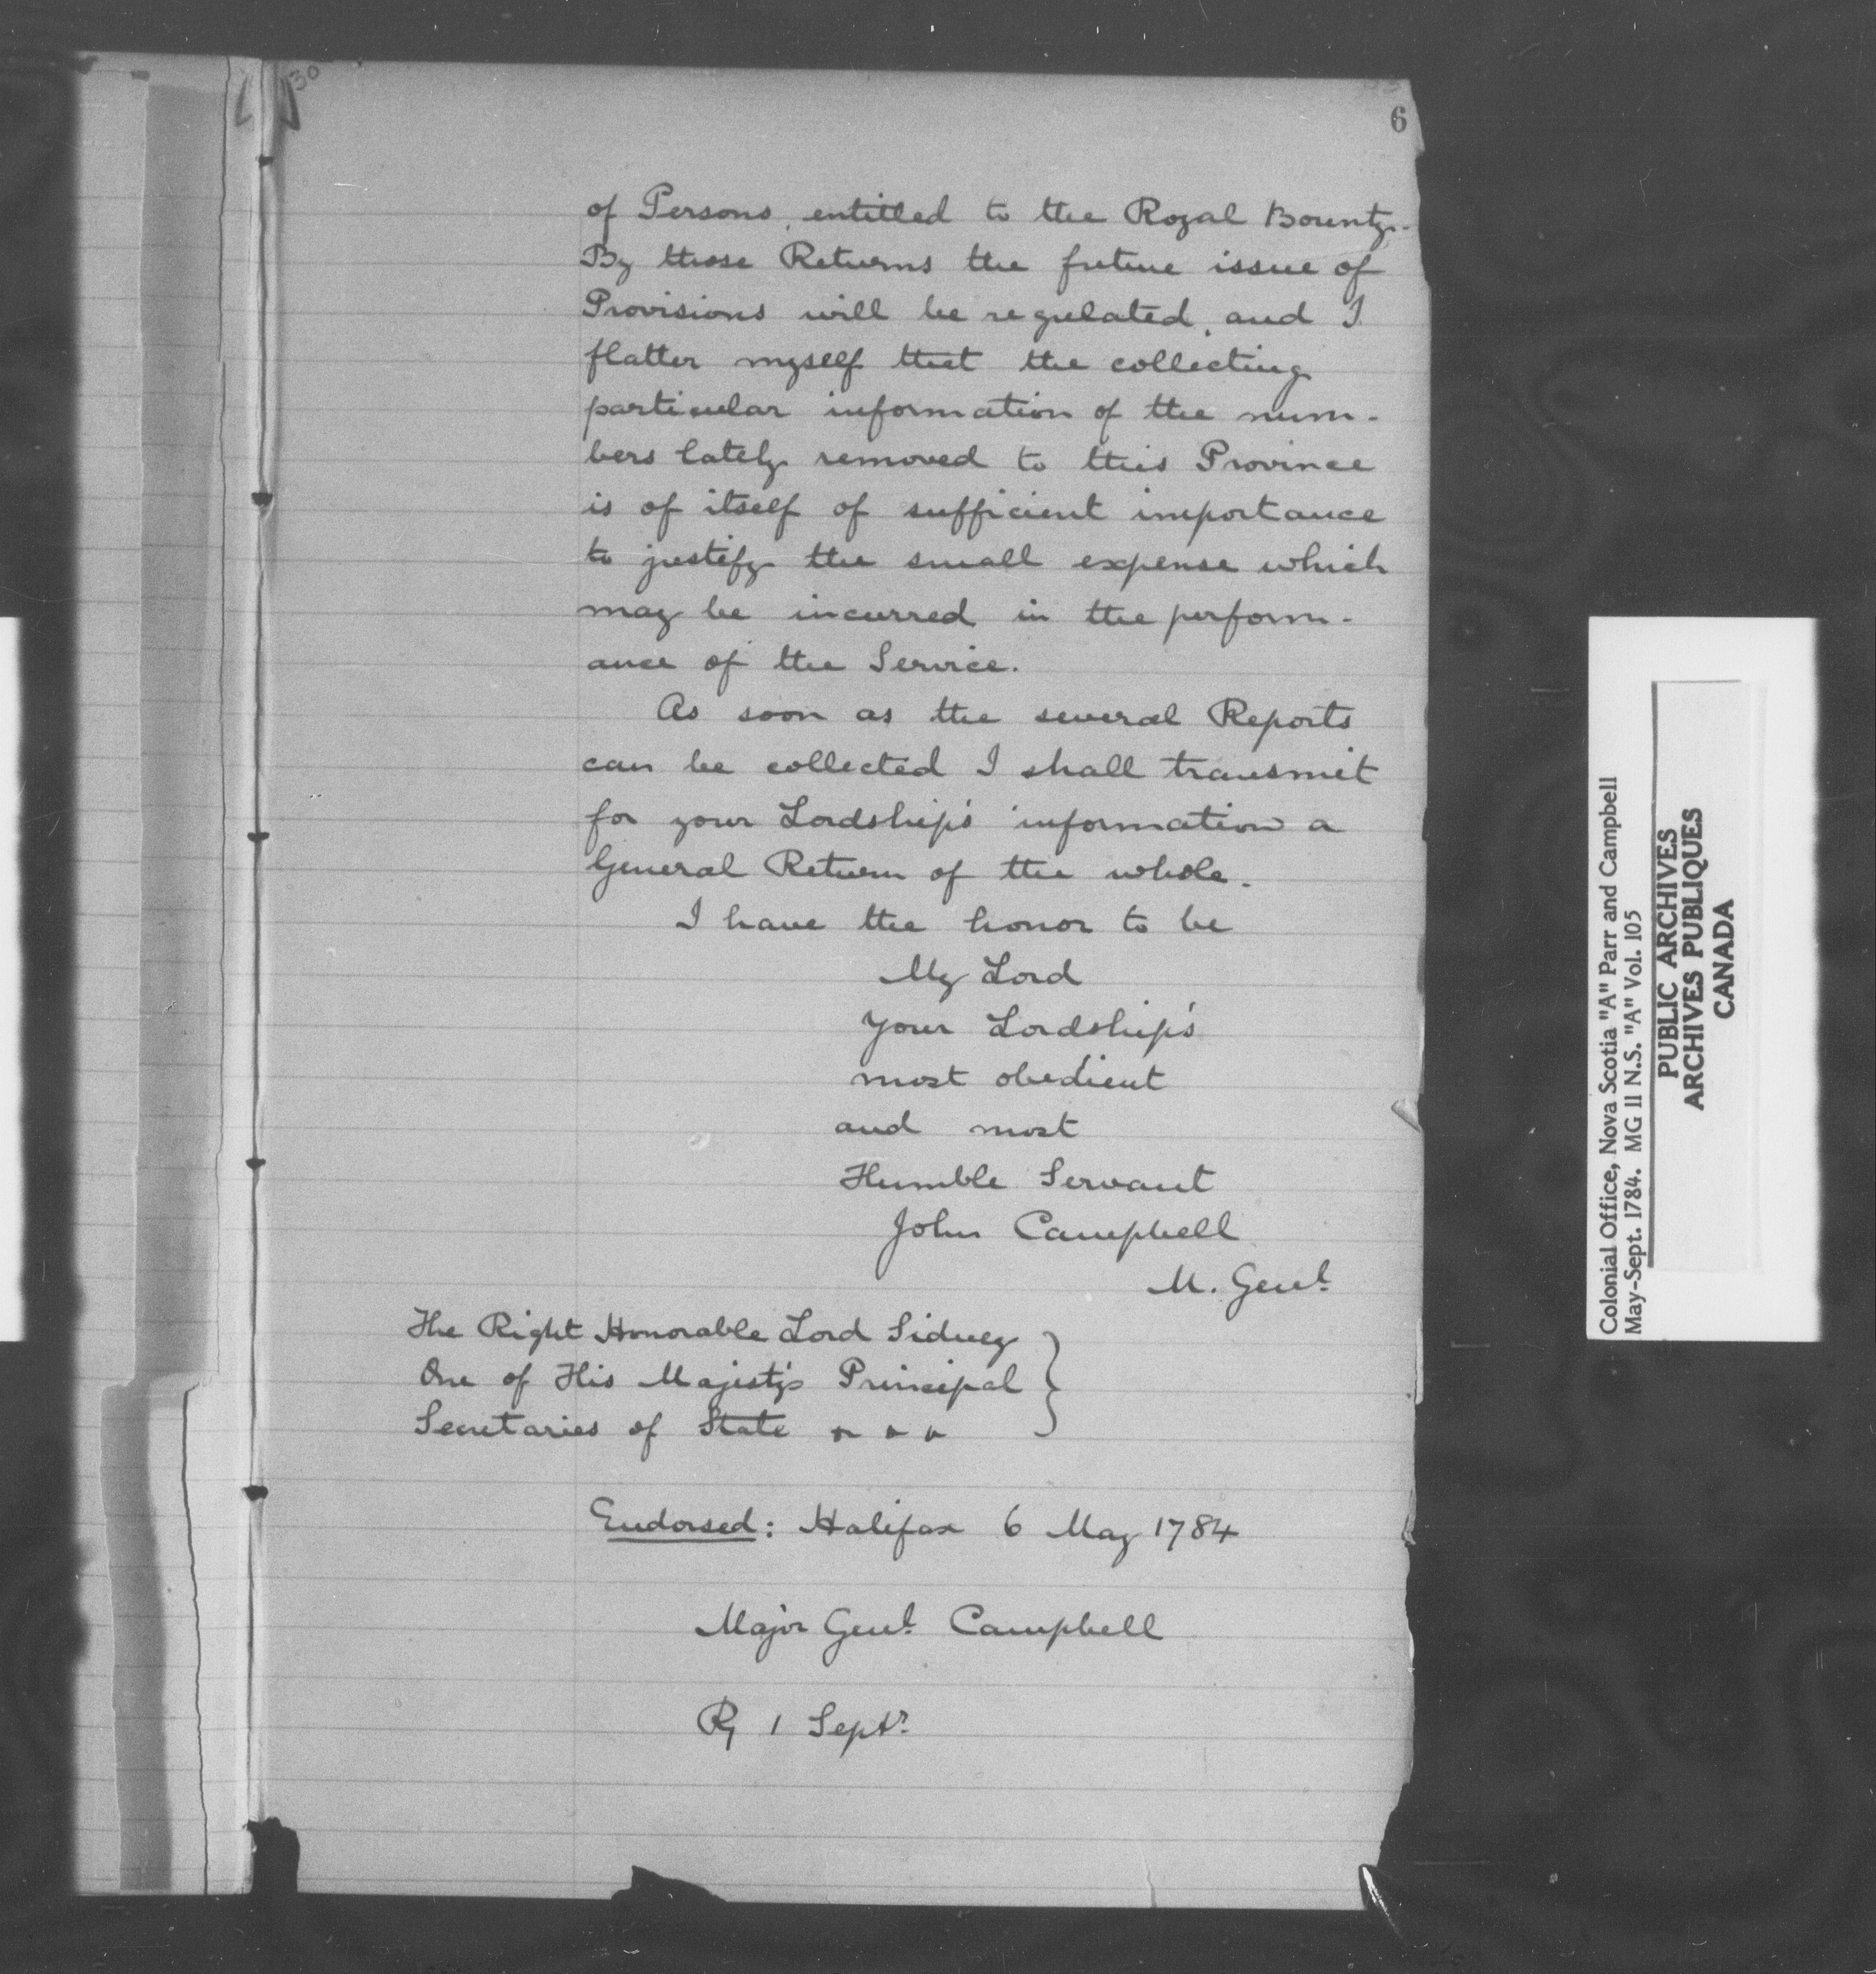 6
of Persons, entitled to the Royal Bounty.
By these Returns the future issue of
Provisions will be regulated, and I
flatter myself that the collecting
particular information of the num-
bers lately removed to this Province
is of itself of sufficient importance
to justify the small expense which
may be incurred in the perform-
ance of the Service.
As soon as the several Reports
can be collected I shall transmit
for your Lordship's information a
General Return of the whole.
I have the honor to be
My Lord
your Lordship's
most obedient
and most
Humble Servant
John Campbell
M. Genl.
The Right Honorable Lord Sidney
One of His Majesty's Principal
Secretaries of State
Endorsed: Halifax 6 May 1784
Major Genl. Campbell
R 1 Septr.
Colonial Office, Nova Scotia "A" Parr and Campbell
May-Sept. 1784. MG 11 N.S. "A" Vol. 105
PUBLIC ARCHIVES
ARCHIVES PUBLIQUES
CANADA